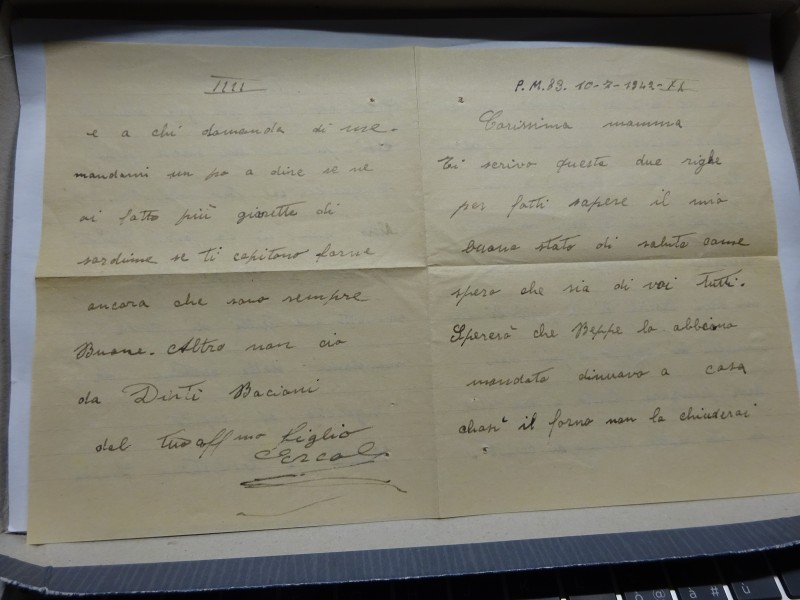 IIII
e a chi domanda di me.
mandami un po a dire se ne
ai fatto più di
sardine se ti capitano farne
ancora che sono sempre
Buone. Altro non cio
da Dirti Bacioni
dal tuo aff mo figlio
Ercole
P.M.83. 10-7-1942-XX
Carissima mamma
Ti scrivo queste due righe
per farti sapere il mio
buono stato di salute come
spero che sia di voi tutti.
Spererò che Beppe lo abbiano
mandato dinuovo a casa
chosi il forno non lo chiuderai
ò @ à # ù